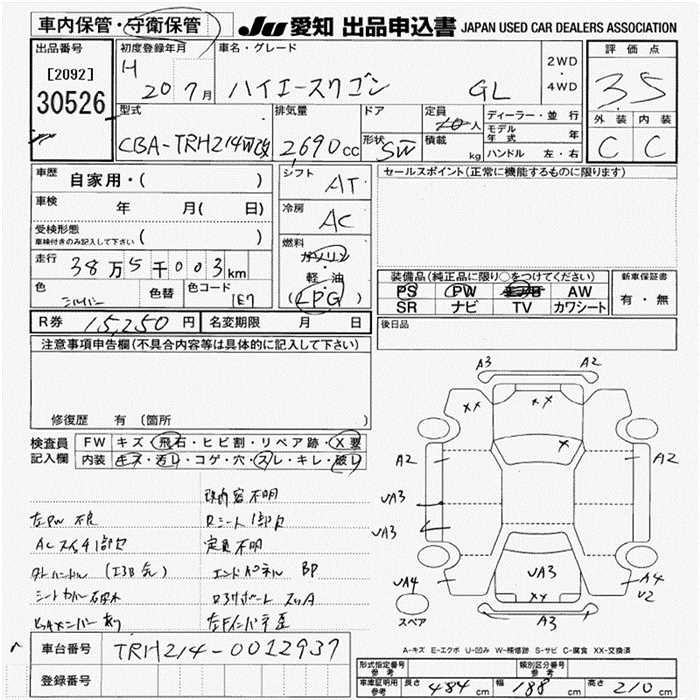 車内保管・守衛保管
JU 愛知 出品申込書 JAPAN USED CAR DEALERS ASSOCIATION
出品番号
[2092]
30526
初度登録年月
H 20 7月
車名・グレード
ハイエースワゴン GL
2WD
・
4WD
評価点
3.5
外装 内装
C C
型式
CBA-TRH214W改
排気量
2,690cc
ドア
形状
SW
定員
10人
積載
kg
ディーラー・並行
モデル年式 年
ハンドル 左・右
車歴 自家用・( )
車検 年 月( 日)
受検形態
車検付きのみ記入して下さい ( )
走行 38万5千003km
色 シルバー 色替 色コード 1E7
シフト AT
冷房 AC
燃料
ガソリン
軽・油
(LPG)
セールスポイント(正常に機能するものに限ります)
装備品(純正品に限り○をつけてください)
PS PW AW
SR ナビ TV カワシート
新車保証書
有・無
R券 15,250円 名変期限 月 日
後日品
注意事項申告欄(不具合内容等は具体的に記入して下さい)
修復歴 有(箇所 )
検査員記入欄
FW キズ・飛石・ヒビ割・リペア跡・X要
内装 キズ・汚れ・コゲ・穴・スレ・キレ・破れ
改内容不明
左PW不良
Rシート1部欠
ACスイッチ1部欠
定員不明
エンドパネル BP
A3 A2
XX XX
X
A2 A2
UA3
UA3
UA3
UA4 A4
U2
XX
A3
スペア
A-キズ E-エクボ U-凹み W-補修跡 S-サビ C-腐食 XX-交換済
車台番号 TRH214-0012937
登録番号
形式指定番号 参考
類別区分番号 参考
車庫証明用 参考 長さ 484cm 幅 188cm 高さ 210cm